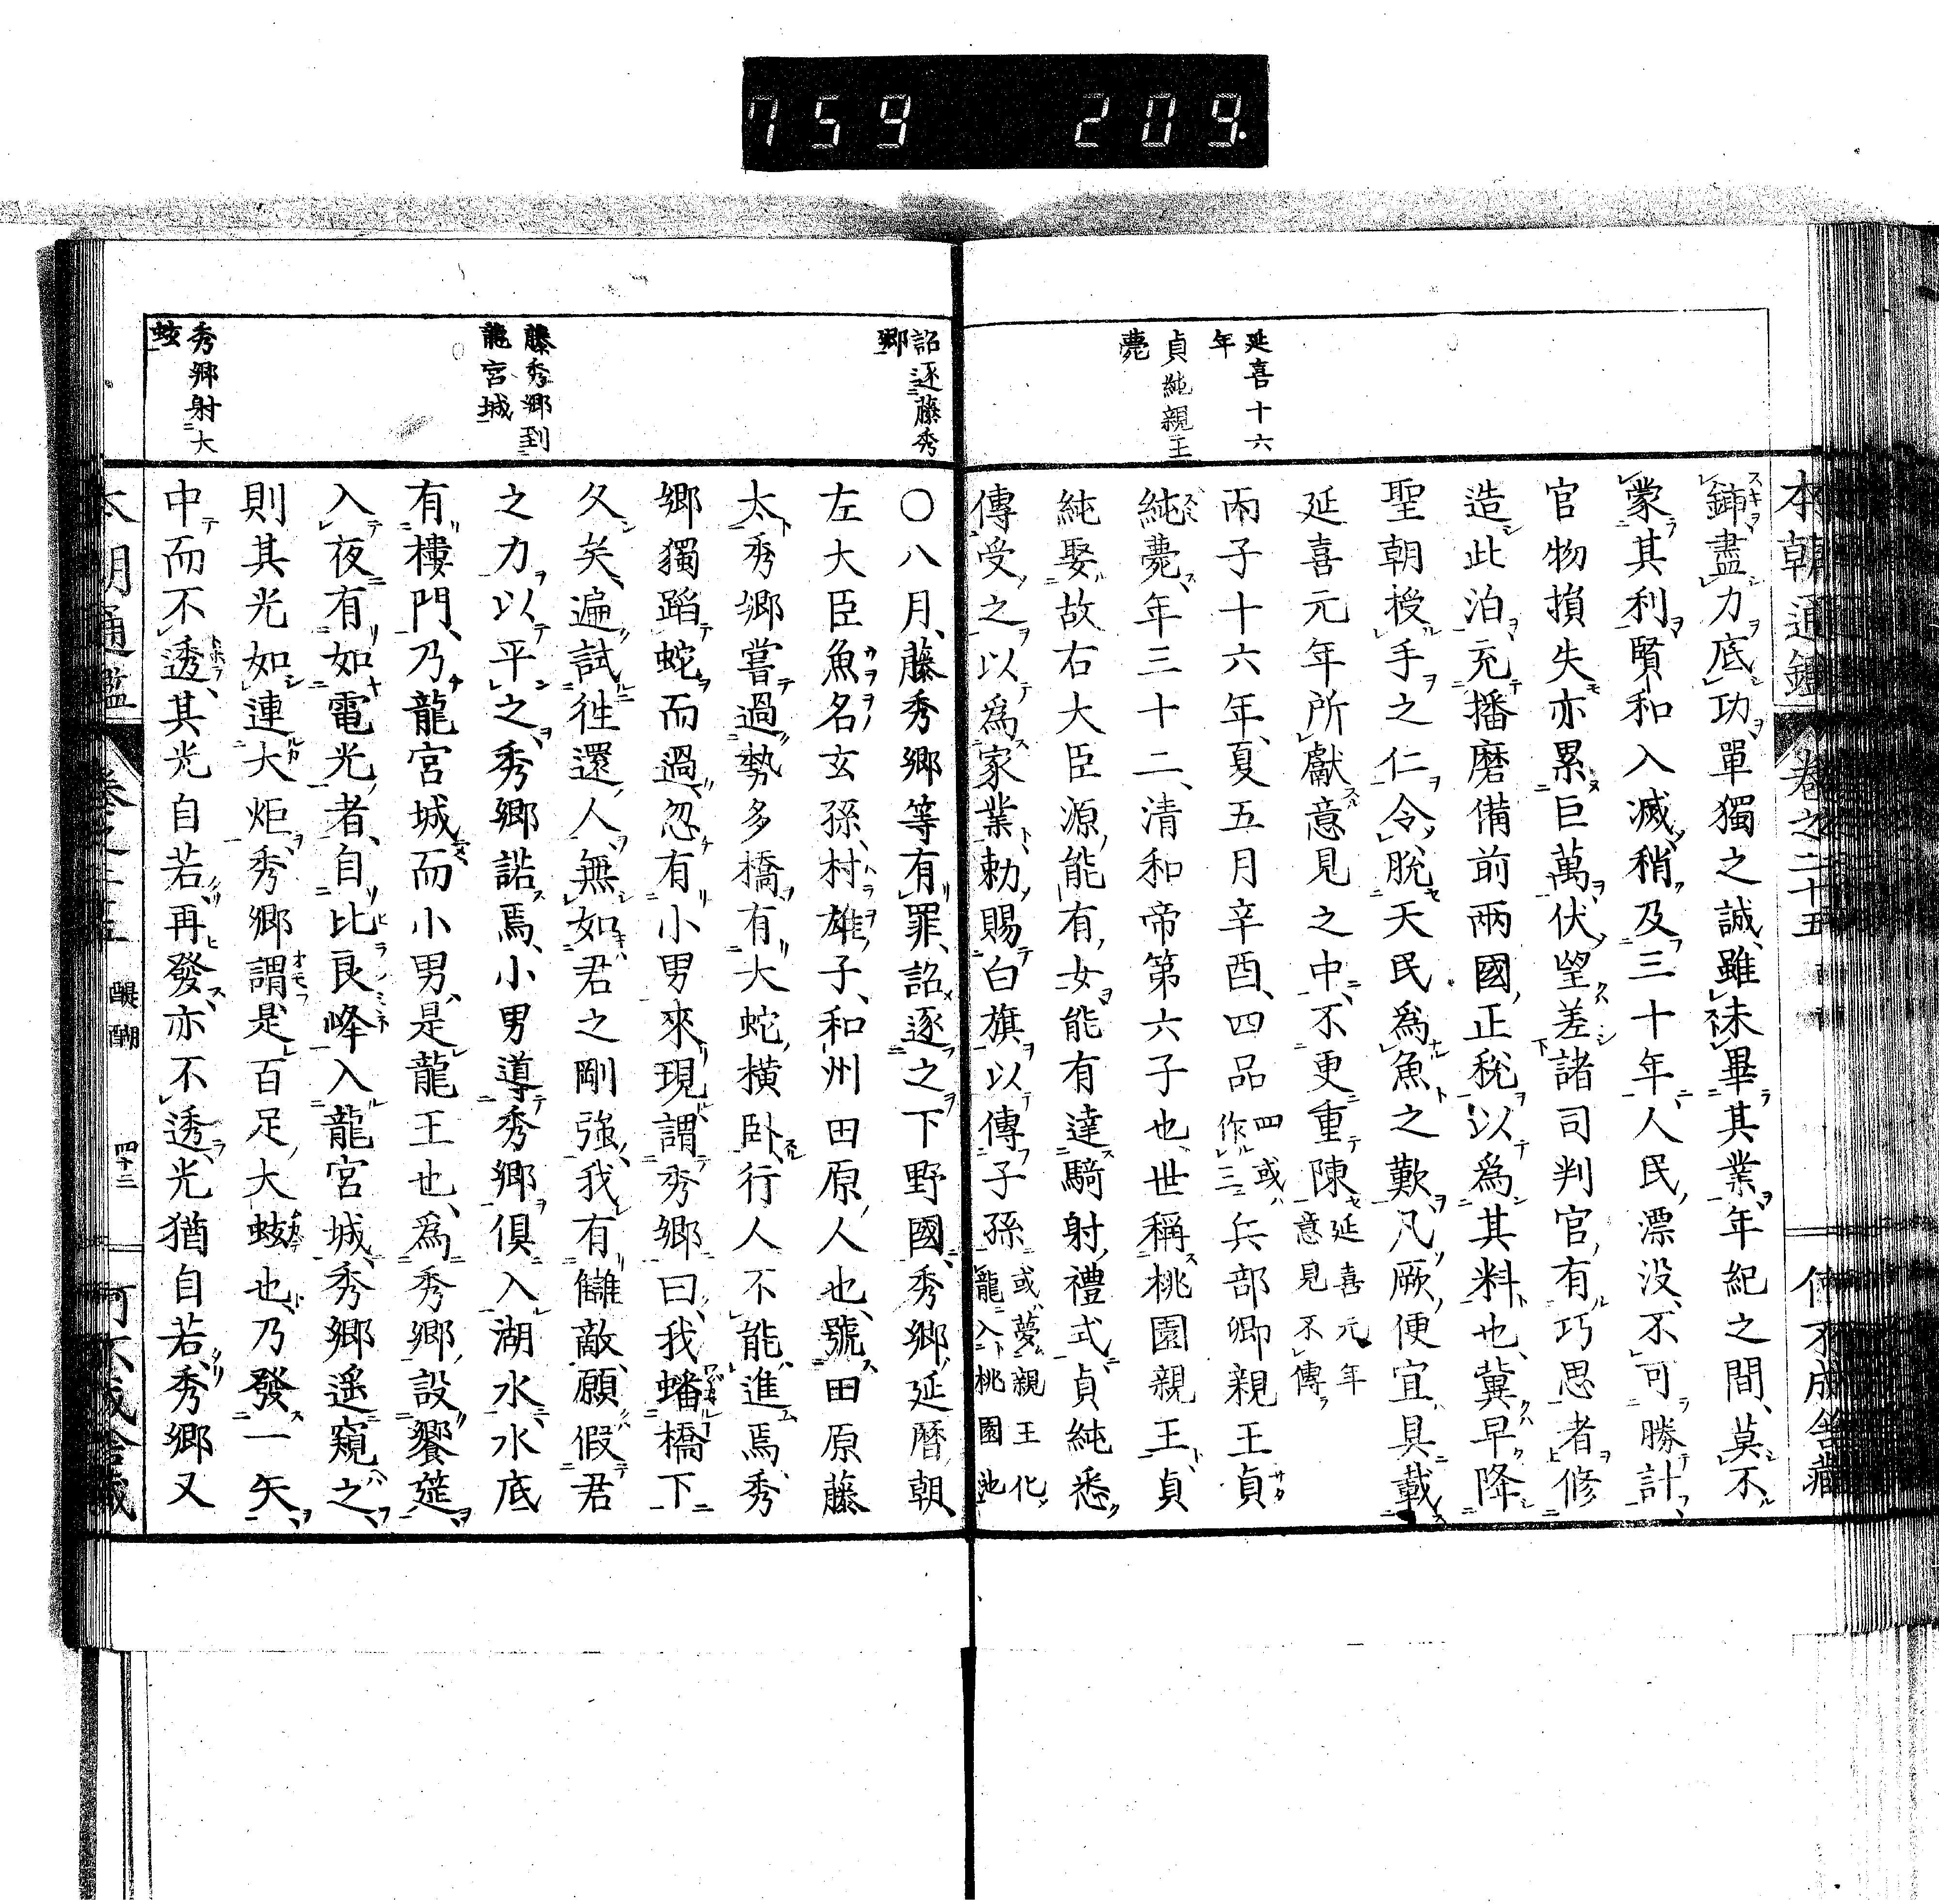 759 209.
本朝通鑑 卷之二十五
延喜十六
年
貞純親王
薨
鍤盡力底功單獨之誠、雖未畢其業、年紀之間、莫不
蒙其利、賢和入滅、稍及三十年、人民漂没、不可勝計、
官物損失亦累巨萬、伏望差諸司判官、有巧思者、修
造此泊、充播磨備前兩國、正税以爲其料也、冀早降
聖朝授手之仁、令脱天民爲魚之歎、凡厥便宜、具載
延喜元年所獻意見之中、不更重陳延喜元年意見不傳
丙子十六年、夏五月辛酉、四品四或作三兵部卿親王貞
純薨、年三十二、清和帝第六子也、世稱桃園親王、貞
純娶故右大臣源能有女、能有達騎射禮式、貞純悉
傳受之、以爲家業、勅賜白旗、以傳子孫或夢親王化龍入桃園池
詔逐藤秀
郷
藤秀郷到
龍宮城
秀郷射大
蚿
〇八月、藤秀郷等有罪、詔逐之下野國、秀郷、延曆朝、
左大臣魚名玄孫、村雄子、和州田原人也、號田原藤
太、秀郷嘗過勢多橋、有大蛇、横臥、行人不能進焉、秀
郷獨蹈蛇而過、忽有小男來現、謂秀郷曰、我蟠橋下
久矣、遍試往還人、無如君之剛強、我有讎敵、願假君
之力、以平之、秀郷諾焉、小男導秀郷、俱入湖水、水底
有樓門、乃龍宮城、而小男、是龍王也、爲秀郷、設饗筵、
入夜有如電光者、自比良峰入龍宮城、秀郷遙窺之、
則其光如連大炬、秀郷謂是百足、大蚿也、乃發一矢、
中而不透、其光自若、再發亦不透、光猶自若、秀郷又
醍醐 四十三